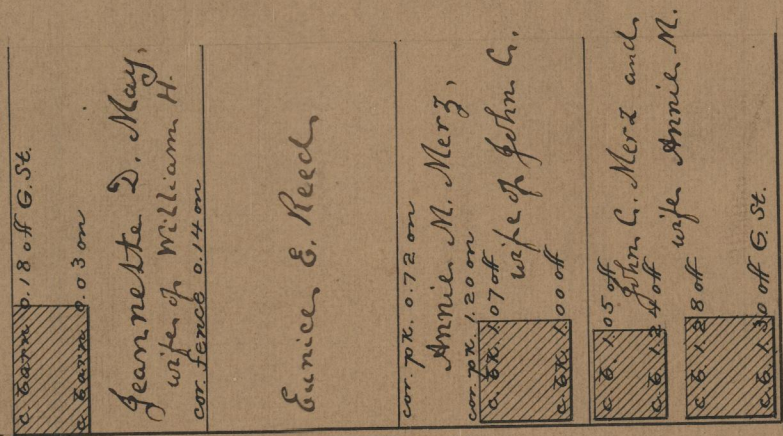 c. barn 0.18 off G. St.
c. barn 0.03 on
Jeannette D. May,
wife of William H.
cor. fence 0.14 on
Eunice E. Reed
cor. pk. 0.72 on
Annie M. Merz,
cor. pk. 1.20 on
wife of John C.
c. bk. 1.07 off
c. bk. 1.00 off
c. b. 1.05 off
John C. Merz and
c. b. 1.24 off
wife Annie M.
c. b. 1.28 off
c. b. 1.30 off G. St.